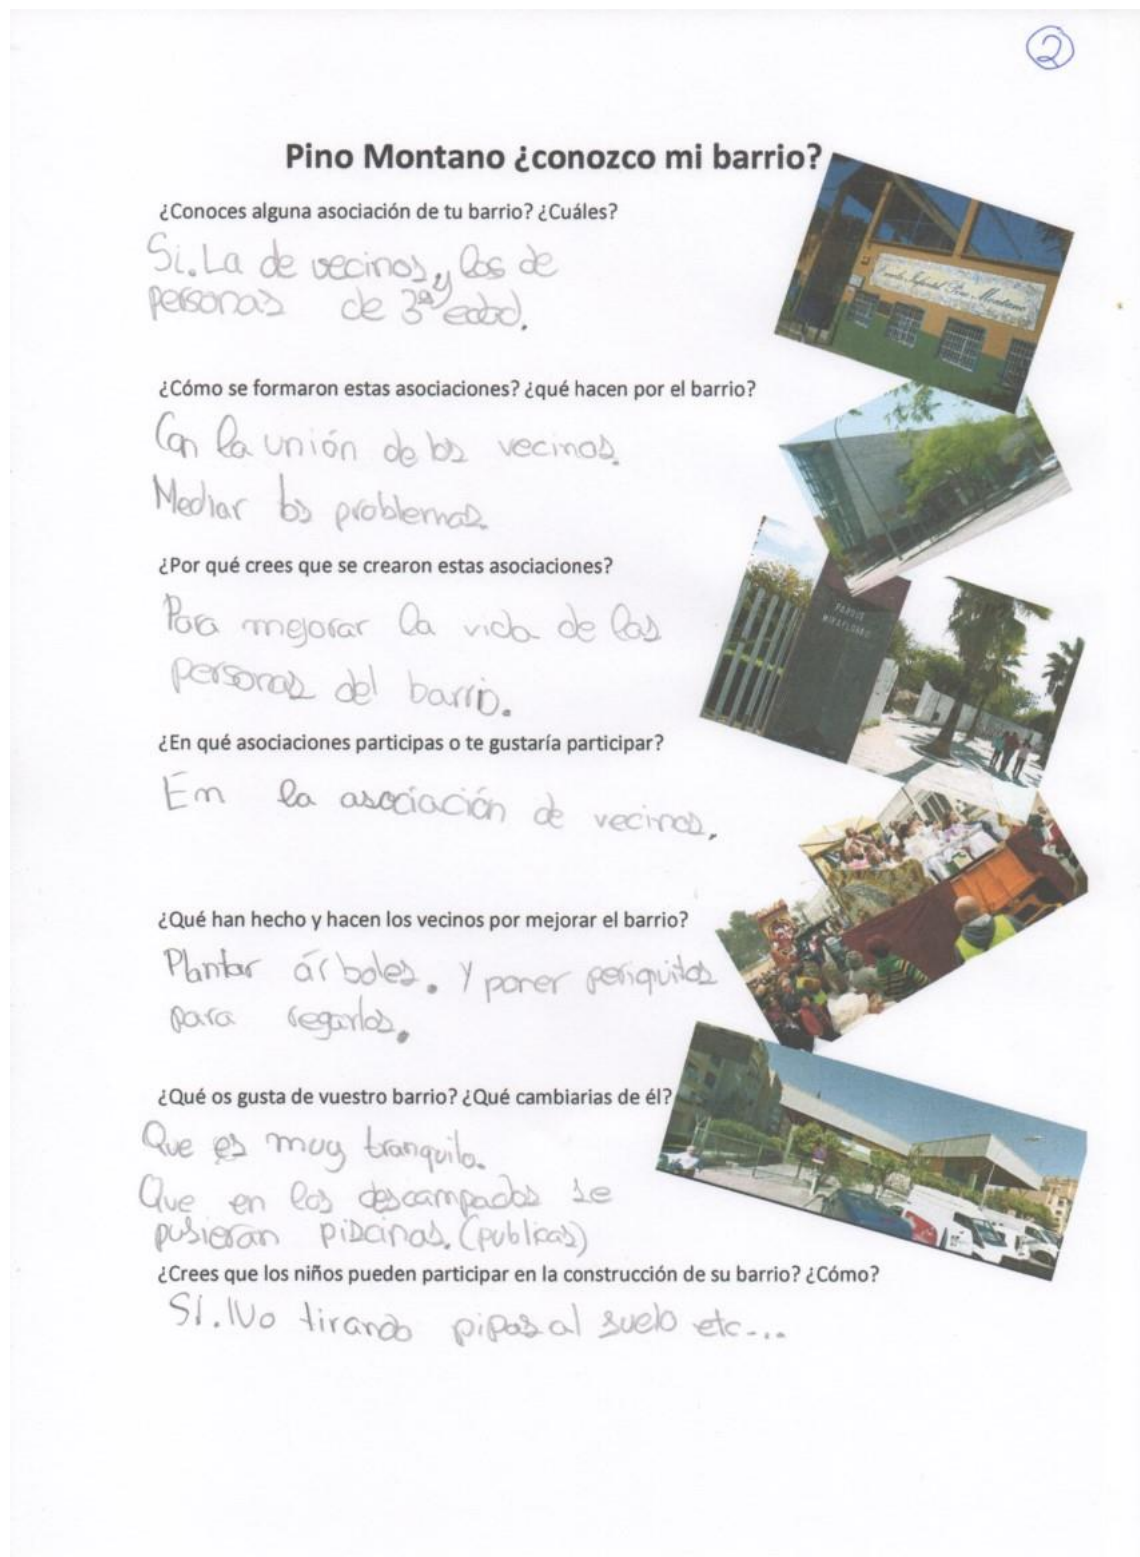 2
Pino Montano ¿conozco mi barrio?
¿Conoces alguna asociación de tu barrio? ¿Cuáles?
Si. La de vecinos, y los de
personas de 3ª edad.
Escuela Infantil Pino Montano
¿Cómo se formaron estas asociaciones? ¿qué hacen por el barrio?
Con la unión de los vecinos.
Mediar los problemas.
¿Por qué crees que se crearon estas asociaciones?
Para mejorar la vida de las
personas del barrio.
PARQUE
MIRAFLORES
¿En qué asociaciones participas o te gustaría participar?
En la asociación de vecinos.
¿Qué han hecho y hacen los vecinos por mejorar el barrio?
Plantar árboles. Y poner periquitos
para regarlos.
¿Qué os gusta de vuestro barrio? ¿Qué cambiarias de él?
Que es muy tranquilo.
Que en los descampados se
pusieran piscinas. (publicas)
¿Crees que los niños pueden participar en la construcción de su barrio? ¿Cómo?
SI. No tirando pipas al suelo etc...